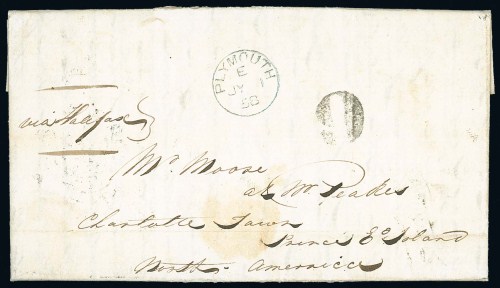 PLYMOUTH
E
JY 1
58
via Halifax
Mr. Moose
at Wm Peakes
Charlotte Town
Prince Ed Island
North Amerrica